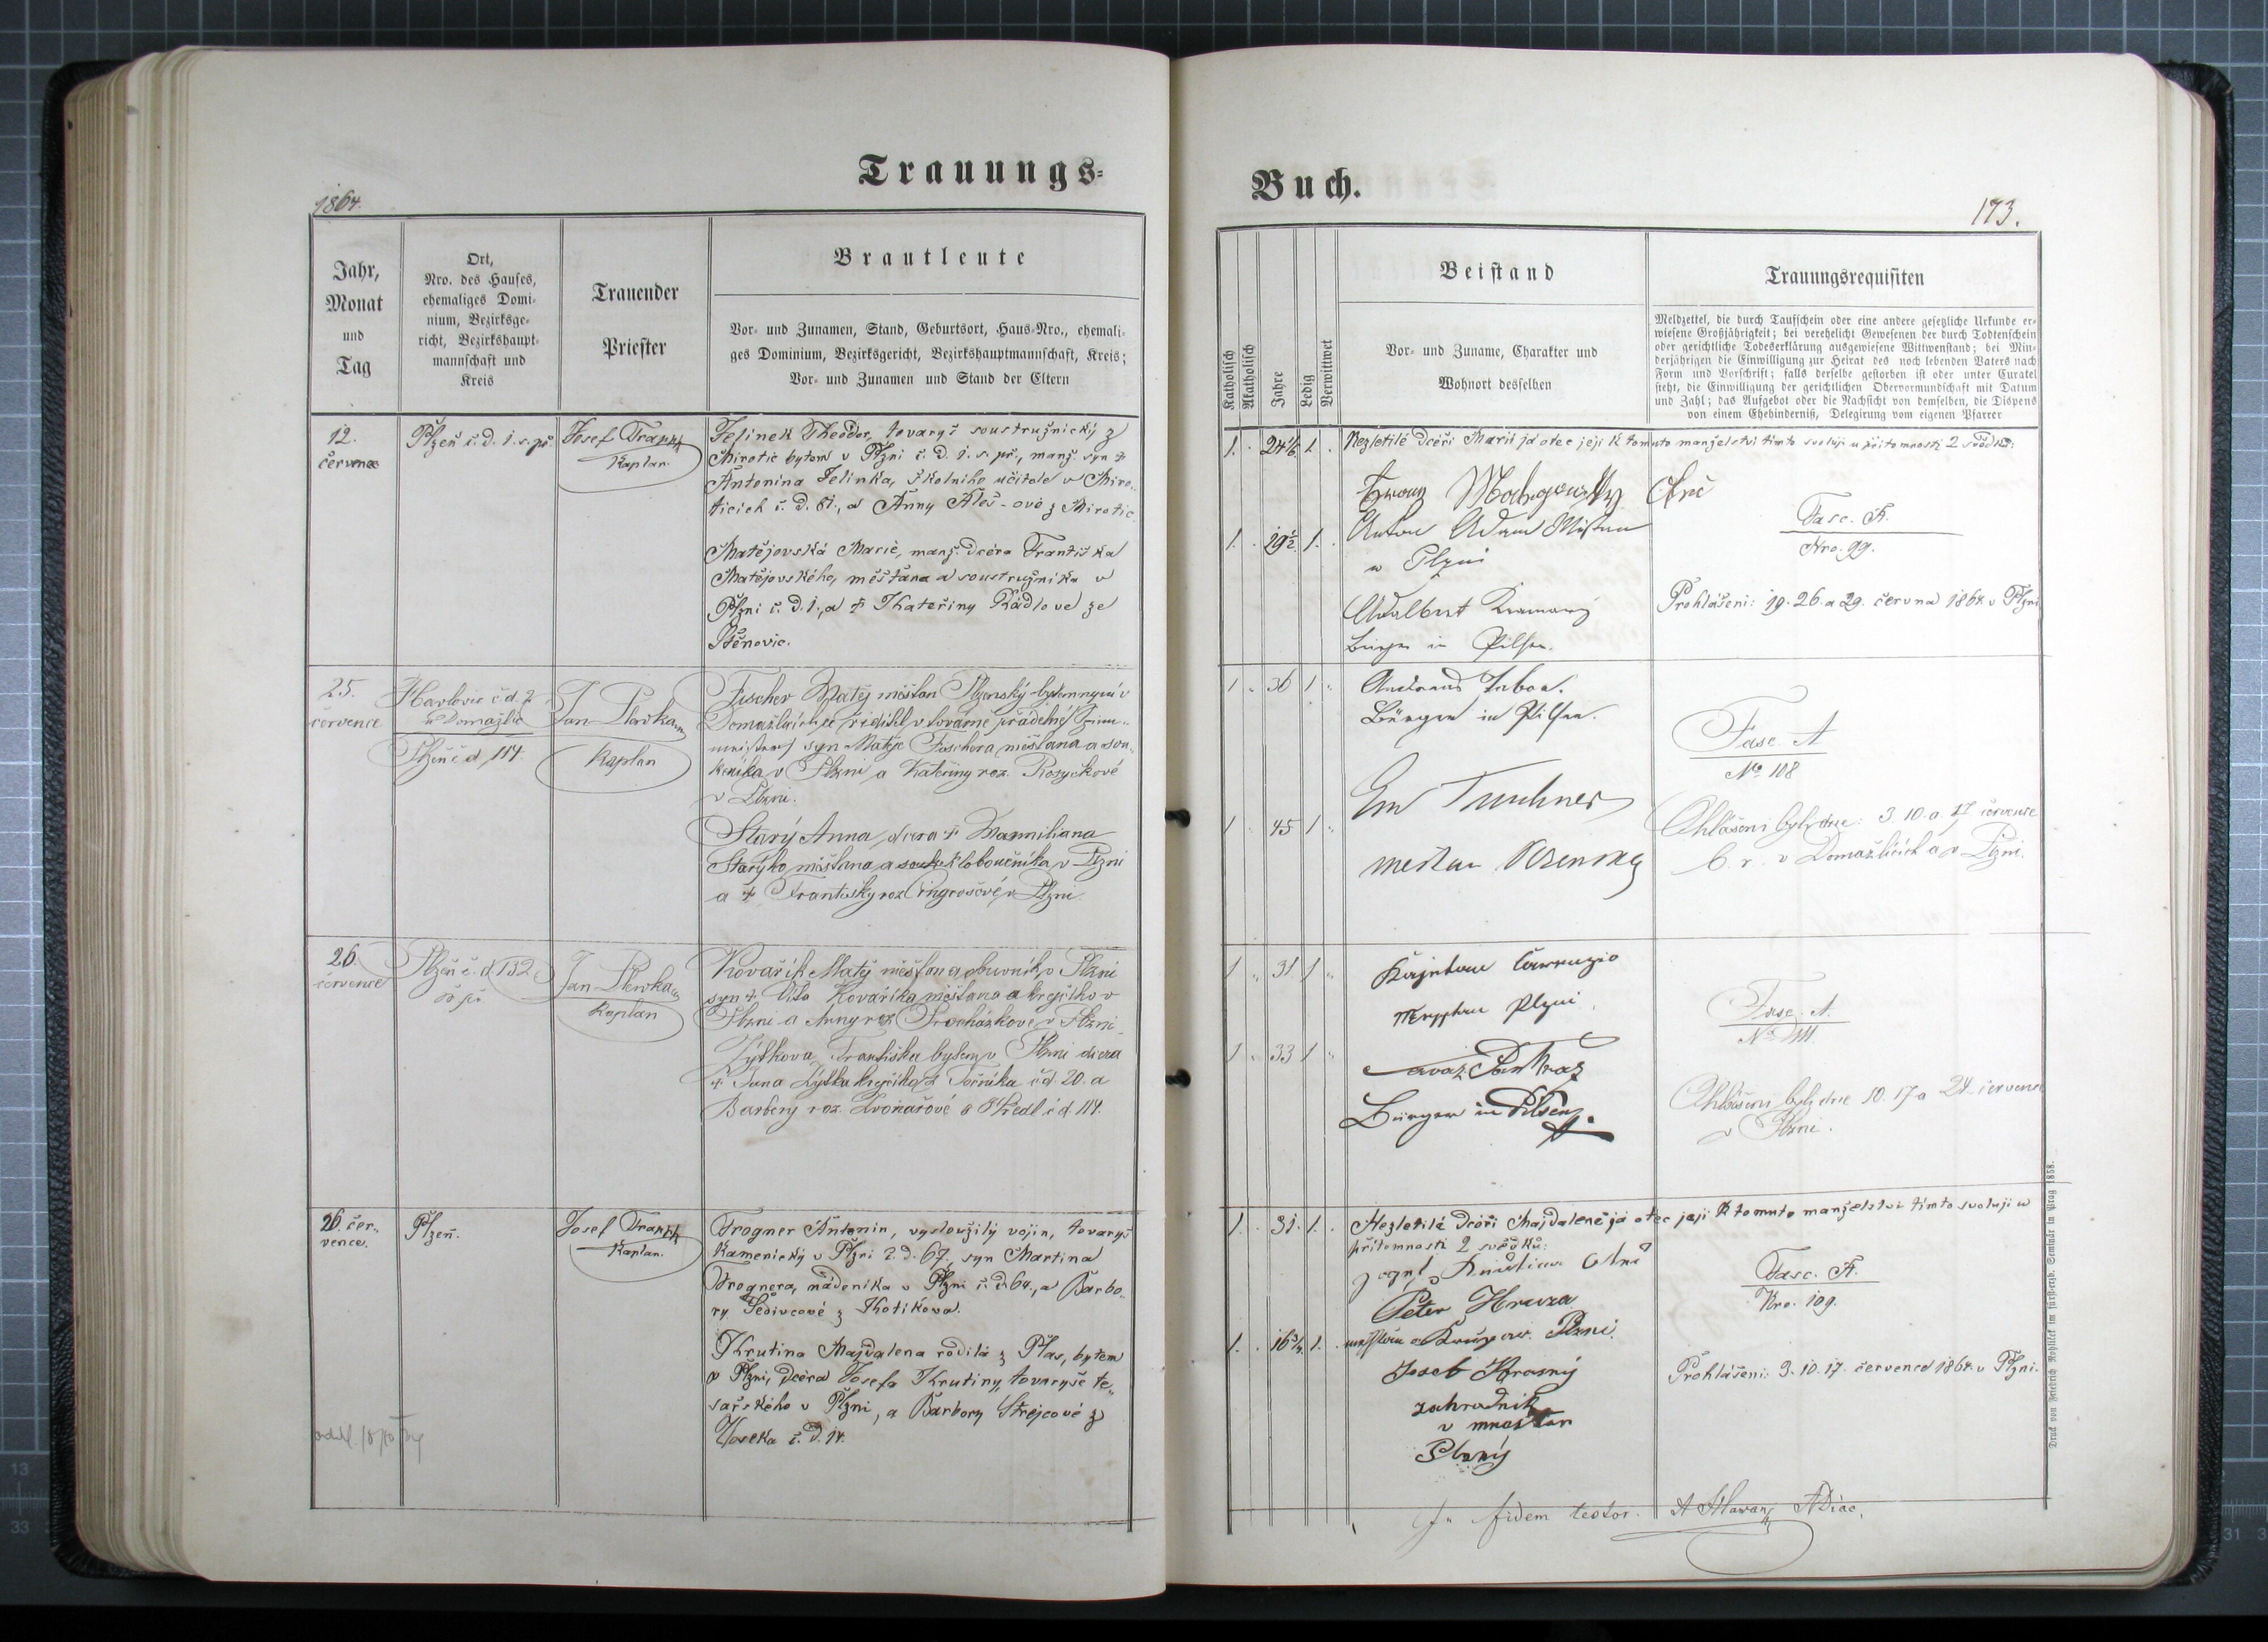 Trauungs-
Buch.
1864.
173.
Jahr,
Monat
und
Tag
Ort,
Nro. des Hauses,
ehemaliges Domi-
nium, Bezirksge-
richt, Bezirkshaupt-
mannschaft und
Kreis
Trauender
Priester
Brautleute
Vor- und Zunamen, Stand, Geburtsort, Haus-Nro., ehemali-
ges Dominium, Bezirksgericht, Bezirkshauptmannschaft, Kreis;
Vor- und Zunamen und Stand der Eltern
Katholisch
Akatholisch
Jahre
Ledig
Verwittwet
Beistand
Vor- und Zuname, Charakter und
Wohnort desselben
Trauungsrequisiten
Meldzettel, die durch Taufschein oder eine andere gesetzliche Urkunde er-
wiesene Großjährigkeit; bei verehelicht Gewesenen der durch Todtenschein
oder gerichtliche Todeserklärung ausgewiesene Wittwenstand; bei Min-
derjährigen die Einwilligung zur Heirat des noch lebenden Vaters nach
Form und Vorschrift; falls derselbe gestorben ist oder unter Curatel
steht, die Einwilligung der gerichtlichen Obervormundschaft mit Datum
und Zahl; das Aufgebot oder die Nachsicht von demselben, die Dispens
von einem Ehehinderniß, Delegirung vom eigenen Pfarrer
12.
července
Plzeň č. d. 1. s. př.
Josef Trappl
Kaplan.
Jelinek Theodor, tovaryš soustružnický z
Mirotic bytem v Plzni č. d. 1. s. př., manž. syn †
Antonina Jelinka, školního učitele v Miro-
ticích č. d. 61., a Anny Aleš-ové z Mirotic
Matějovská Marie, manž. dcéra Františka
Matějovského, měšťana a soustružníka v
Plzni č. d. 1., a † Kateřiny Rádlové ze
Štěnovic.
1. 24 1/6 1.
Nezletilé dceři Marii já otec její k tomuto manželství tímto svoluji u přítomnosti 2 svědků:
1. 29 1/2 1.
Anton Adam Mistan
w Plzni
Adalbert
Bürger in Pilsen.
Fasc. A.
Nro. 99.
Prohlášeni: 19. 26. a 29. června 1864 v Plzni
25.
července
Havlovic čd. 2
u Domažlic
Plzeň č d 114.
Kaplan
Fischer Matěj měšťan Plzenský bytem nyní v
Domažlicích, ředitel v továrně přádelné
syn Matěje Fischera, měšťana a sou-
keníka v Plzni a Kateřiny roz. Rosyčkové
v Plzni.
Starý Anna, dcera † Maxmiliana
Starýho měšťana a kloboučníka v Plzni
a † Františky roz. Ringrosové v Plzni.
1 36 1
Bürger in Pilsen.
1 45 1
Em Tuschner
mestan Plzensky
Fasc A
No 108
Ohlášeni byli dne: 3. 10. a 17 července
b. r. v Domažlicích a v Plzni.
26.
července
Plzeň č. d. 132
Kaplan
Kovařík Matěj měšťan a obuvník v Plzni
syn † Víta Kovaříka měšťana a krejčího v
Plzni a Anny roz Procházkové v Plzni.
Zýtkova Františka bytem v Plzni dcera
† Jana Zýtka krejčího z Točníka čd. 20. a
Barbory roz. Tvonařové
č d 114.
1 31 1
Plzni.
1 33 1
Bürger in Pilsen
Fasc. A.
No 111
Ohlášeni byli dne 10. 17 a 24. července
v Plzni.
26. čer-
vence.
Plzeň.
Josef Trappl
Kaplan.
Trogner Antonin, vysloužilý vojín, tovaryš
kamenický v Plzni č. d. 67, syn Martina
Trognera, nádeníka v Plzni č. d. 64., a Barbo-
ry Šedivcové z Chotíkova.
Krutina Majdalena rodilá z Plas, bytem
v Plzni, dcéra Josefa Krutiny, tovaryše te-
sařského v Plzni, a Barbory Strejcové z
Voseka č. d. 14.
1. 31. 1.
Nezletilé dceři Majdaleně já otec její k tomuto manželství tímto svoluji u
přítomnosti 2 svědků:
Peter Hruza
1. 16 3/4. 1.
Plzni.
Josef Krasný
zahradník
v
Fasc. A.
Nro. 109.
Prohlášeni: 3. 10. 17. července 1864 v Plzni.
fidem testor.
Druck von Friedrich Rohliček im fürsterzb. Seminär in Prag 1858.